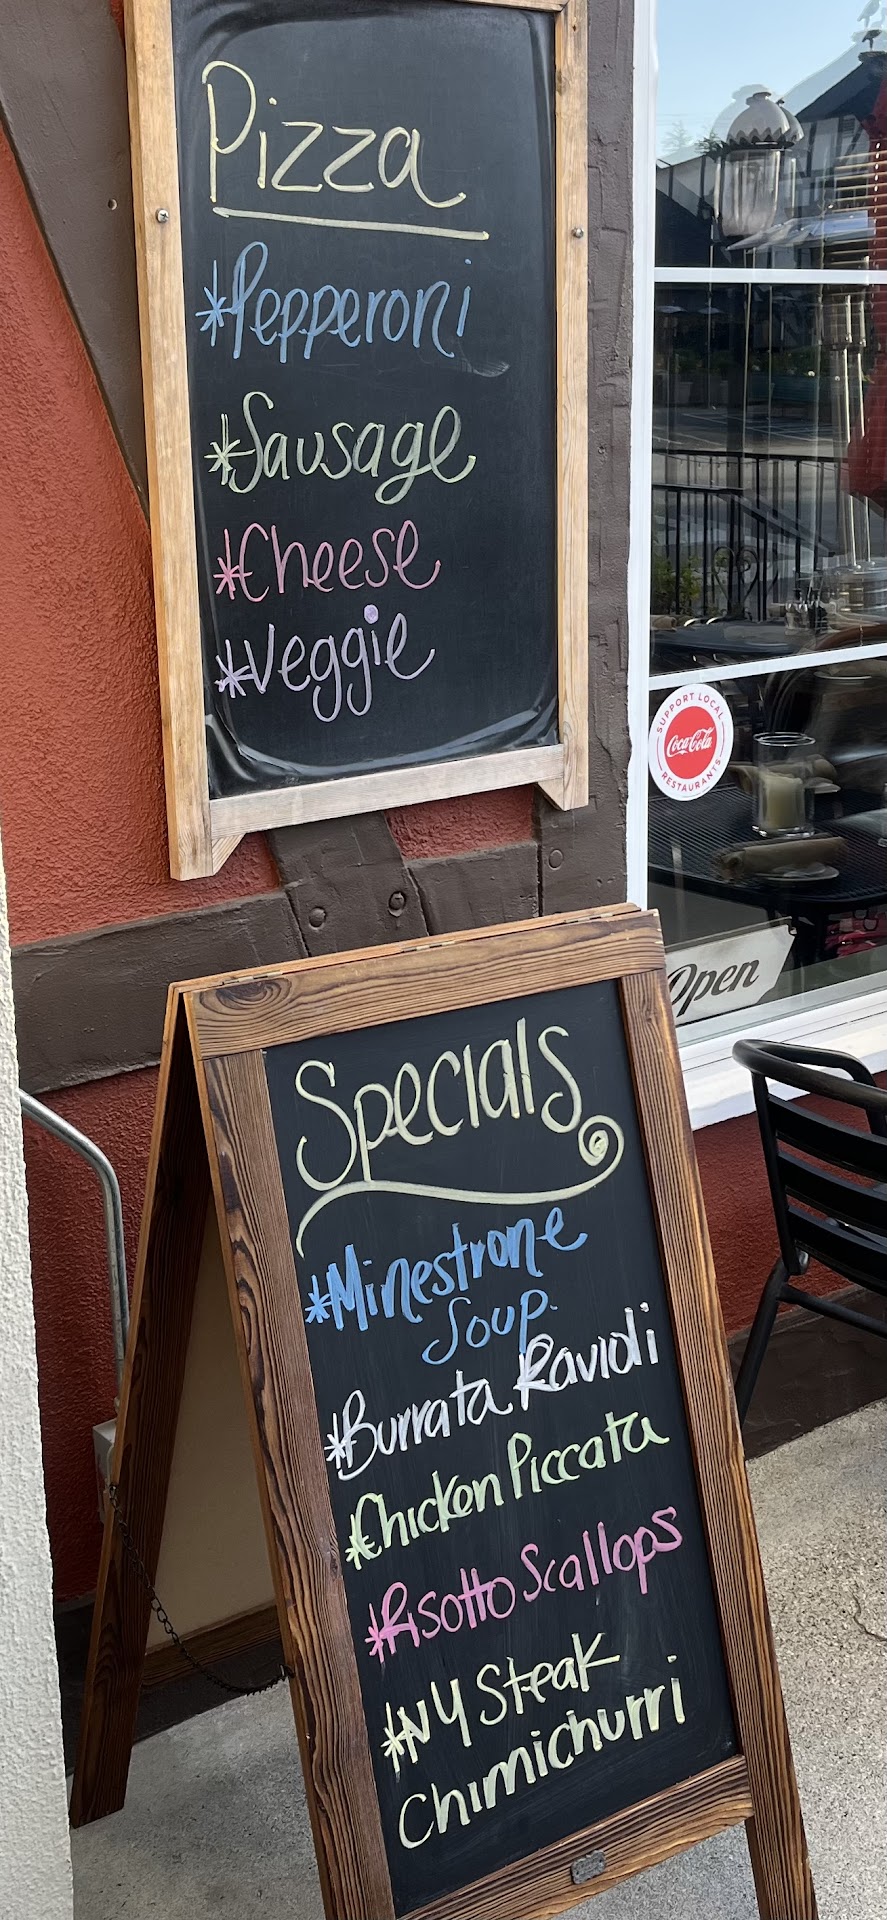 Pizza
*Pepperoni
*Sausage
*Cheese
*Veggie
SUPPORT LOCAL
Coca-Cola
RESTAURANTS
Open
Specials
*Minestrone
Soup.
*Burrata Ravioli
*Chicken Piccata
*Risotto Scallops
*NY Steak
Chimichurri